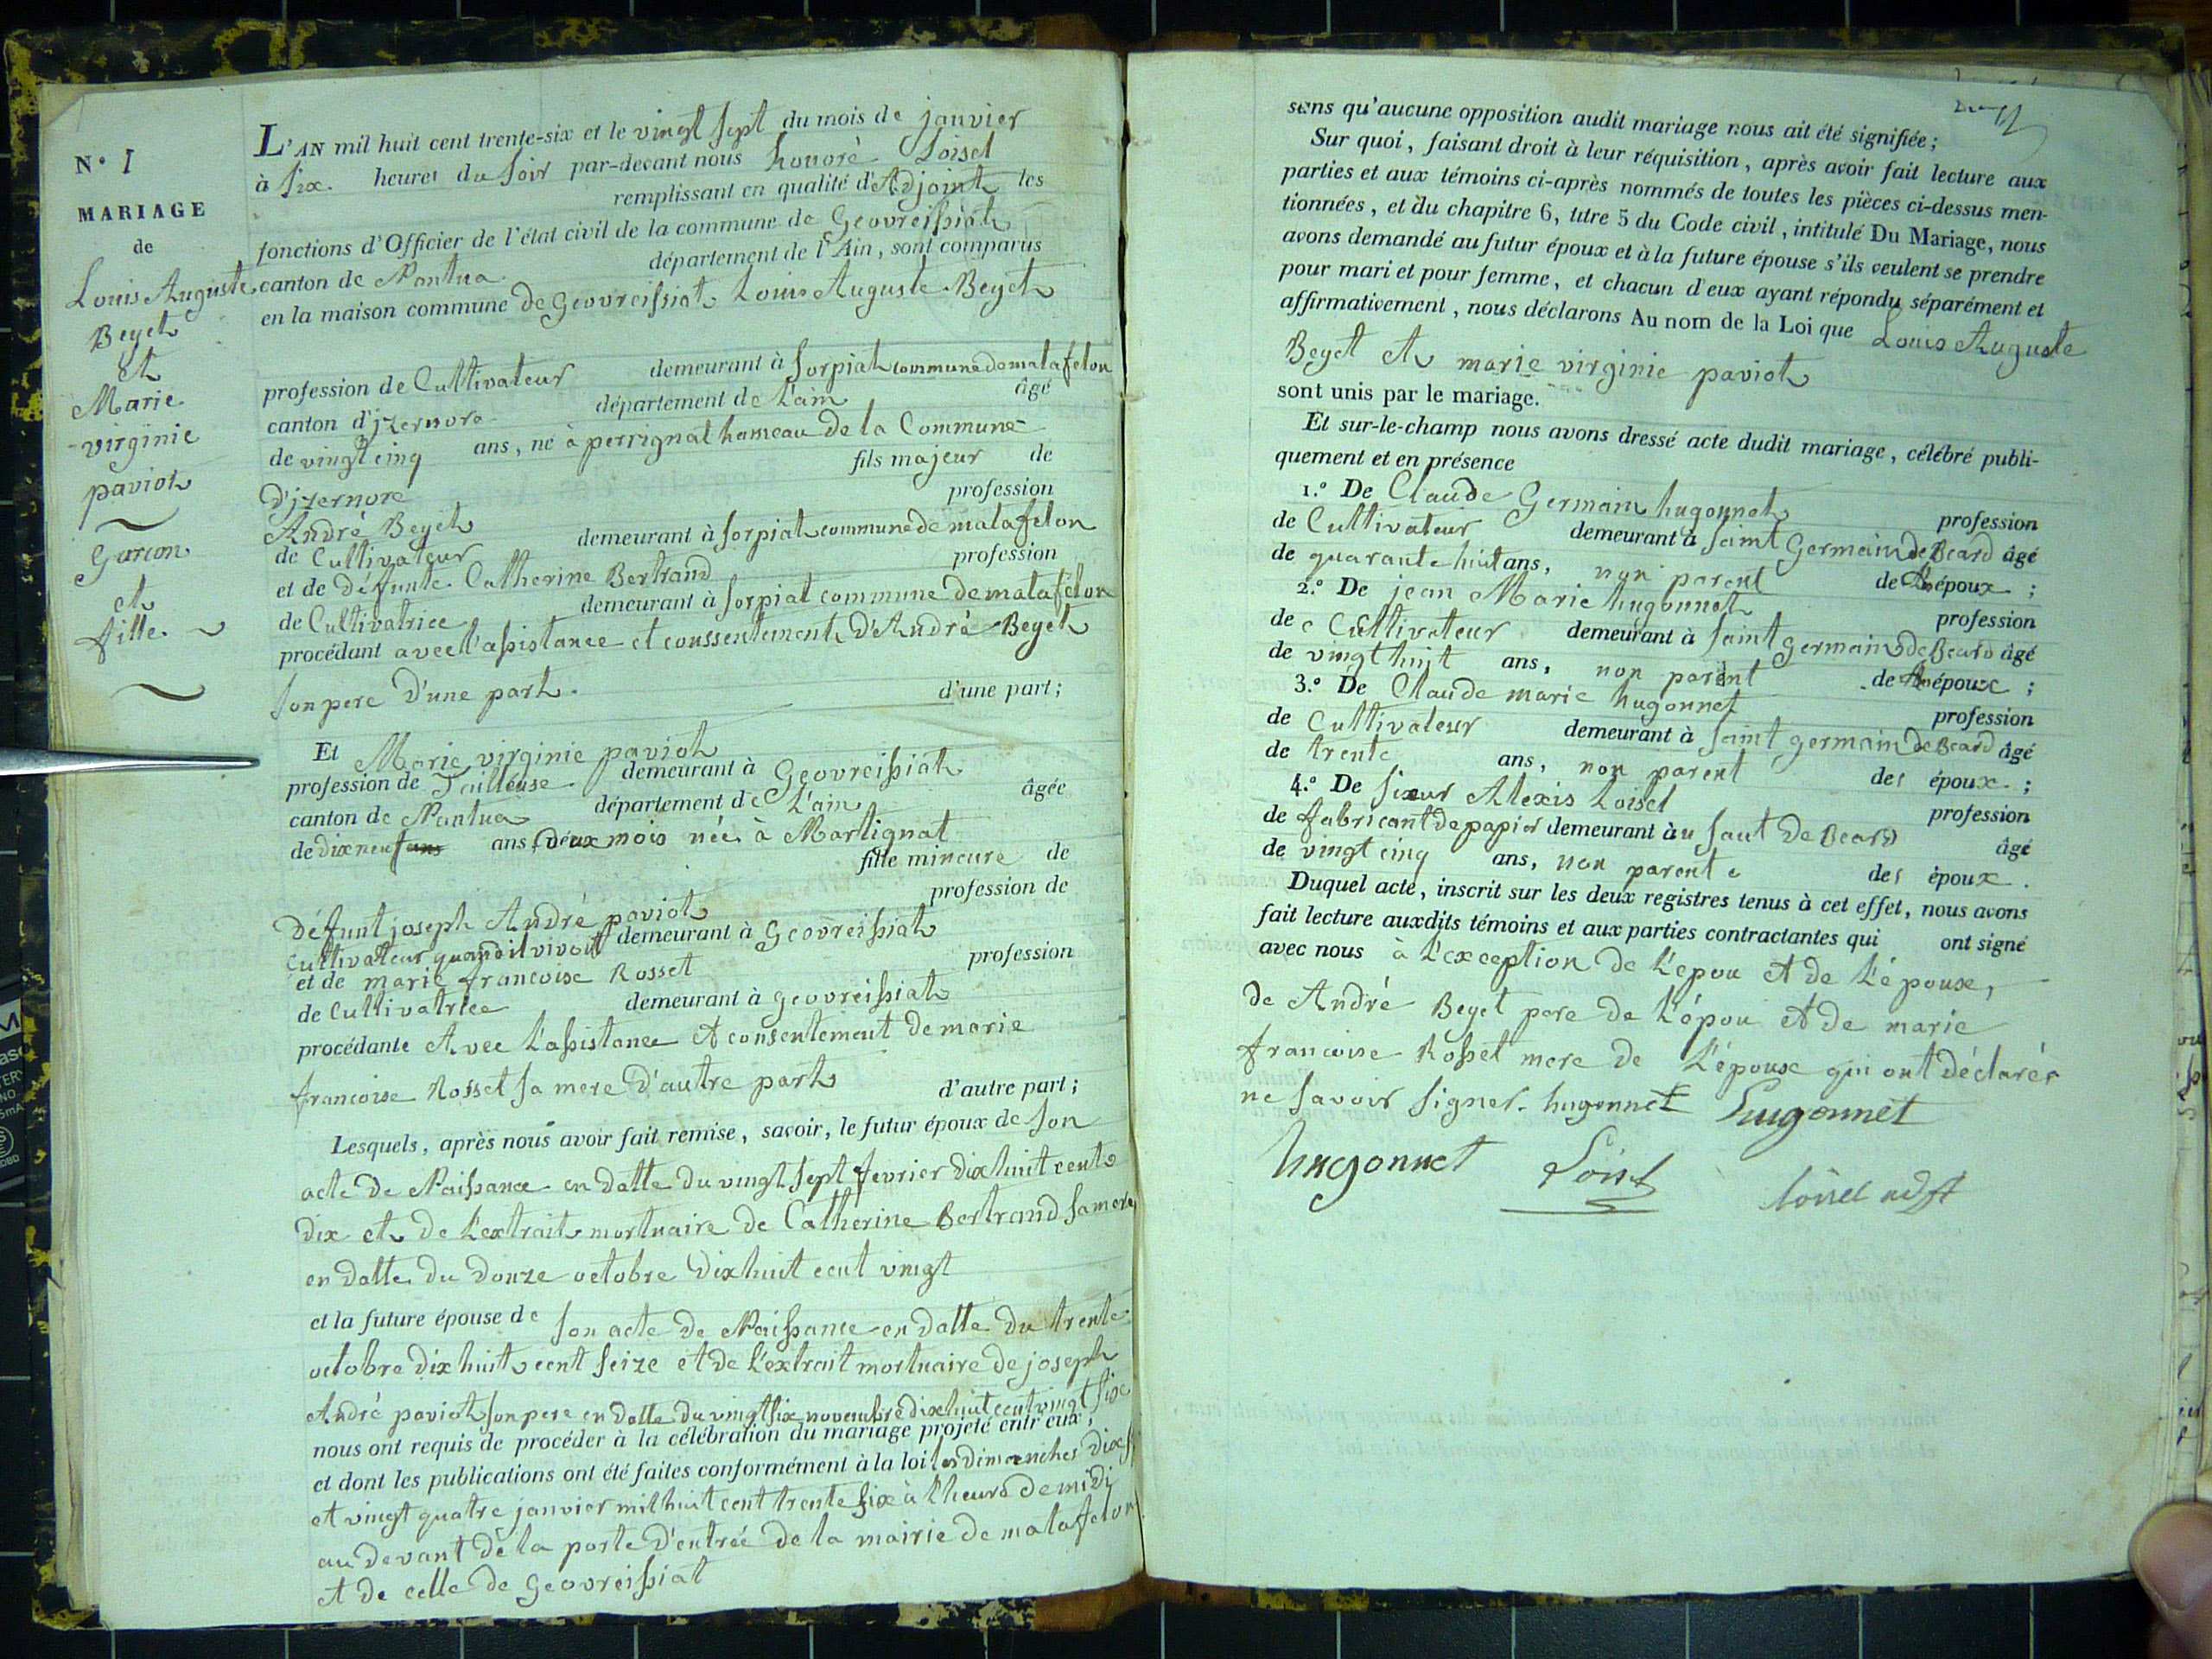 N.º 1
MARIAGE
de
Louis Auguste
Beyet
et
Marie
virginie
paviot
Garcon
et
fille
L'AN mil huit cent trente-six et le vingt sept du mois de janvier
à six heures du soir par-devant nous honoré Loisel
remplissant en qualité d'Adjoint les
fonctions d'Officier de l'état civil de la commune de Geovreissiat
canton de Nantua département de l'Ain, sont comparus
en la maison commune de Geovreissiat Louis Auguste Beyet
profession de Cultivateur demeurant à sorpiat commune de matafelon
canton d'izernore département de L'ain âgé
de vingt cinq ans, né à perrignat hameau de la Commune
D'izernore fils majeur de
André Beyet profession
de Cultivateur demeurant à sorpiat commune de matafelon
et de défunte Catherine Bertrand profession
de Cultivatrice demeurant à sorpiat commune de matafelon
procédant avec l'assistance et conssentement D'André Beyet
son pere D'une part. d'une part;
Et Marie virginie paviot
profession de Tailleuse demeurant à Geovreissiat
canton de Nantua département de L'ain âgée
de dix neuf ans ans, deux mois née à Martignat
fille mineure de
Défunt joseph André paviot profession de
Cultivateur quand il vivoit demeurant à Geovreissiat
et de marie francoise Rosset profession
de Cultivatrice demeurant à geovreissiat
procédante Avec L'assistance et consentement de marie
francoise Rosset sa mere D'autre part d'autre part;
Lesquels, après nous avoir fait remise, savoir, le futur époux de son
acte de Naissance en datte du vingt sept fevrier dix huit cent
dix et de L'extrait mortuaire de Catherine Bertrand sa mere
en datte du douze octobre dix huit cent vingt
et la future épouse de son acte de Naissance en datte du trente
octobre dix huit cent seize et de L'extrait mortuaire de joseph
André paviot son pere en datte du vingt six novembre dix huit cent vingt six
nous ont requis de procéder à la célébration du mariage projeté entr'eux,
et dont les publications ont été faites conformément à la loi les dimanches dix s
et vingt quatre janvier mil huit cent trente six à l'heure de midi
au devant de la porte D'entrée de la mairie de matafelon
et de celle de geovreissiat
sans qu'aucune opposition audit mariage nous ait été signifiée;
Sur quoi, faisant droit à leur réquisition, après avoir fait lecture aux
parties et aux témoins ci-après nommés de toutes les pièces ci-dessus men-
tionnées, et du chapitre 6, titre 5 du Code civil, intitulé Du Mariage, nous
avons demandé au futur époux et à la future épouse s'ils veulent se prendre
pour mari et pour femme, et chacun d'eux ayant répondu séparément et
affirmativement, nous déclarons Au nom de la Loi que Louis Auguste
Beyet et marie virginie paviot
sont unis par le mariage.
Et sur-le-champ nous avons dressé acte dudit mariage, célébré publi-
quement et en présence
1.º De Claude Germain hugonnet profession
de Cultivateur demeurant à saint Germain de Beard âgé
de quarante huit ans, non parent des époux ;
2.º De jean Marie hugonnet profession
de Cultivateur demeurant à saint germain de Beard âgé
de vingt huit ans, non parent des époux ;
3.º De Claude marie hugonnet profession
de Cultivateur demeurant à saint germain de Beard âgé
de trente ans, non parent des époux ;
4.º De sieur Alexis Loisel profession
de fabricant de papier demeurant àu saut de Beard âgé
de vingt cinq ans, non parent des époux.
Duquel acte, inscrit sur les deux registres tenus à cet effet, nous avons
fait lecture auxdits témoins et aux parties contractantes qui ont signé
avec nous à L'exception de L'epou et de L'épouse,
de André Beyet pere de L'épou et de marie
francoise Rosset mere de L'épouse qui ont déclarér
ne savoir signer. hugonnet Hugonnet
hugonnet Loisel Loisel adjt